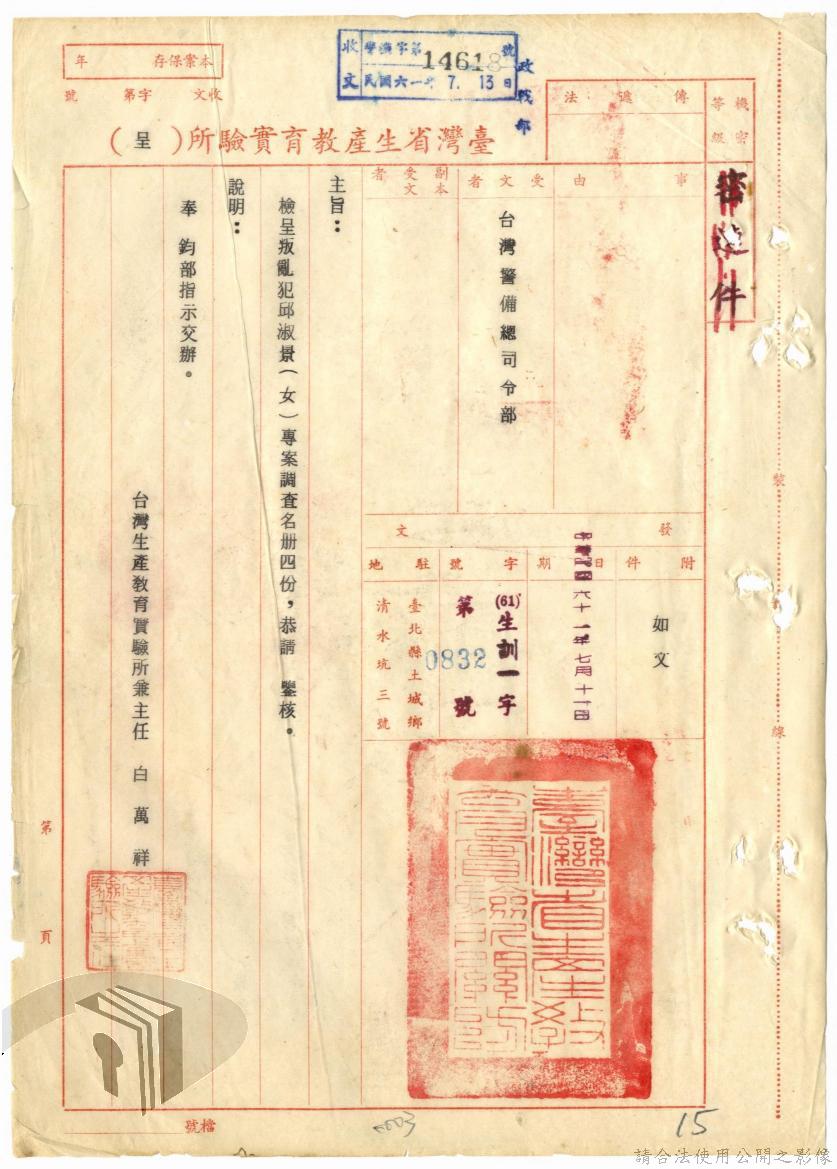 本案保存 年
收文 字第 號
收文 警 字第14618號
民國六一年7.13日
政戰部
臺灣省生產教育實驗所(呈)
機密等級
密速件
傳遞法
事由
受文者
台灣警備總司令部
副本受文者
發文
附件
如文
日期
中華民國六十一年七月十一日
字號
(61)生訓一字
第0832號
駐地
臺北縣土城鄉
清水坑三號
主旨：
檢呈叛亂犯邱淑景(女)專案調查名册四份，恭請 鑒核。
說明：
奉 鈞部指示交辦。
台灣生產教育實驗所兼主任 白萬祥
臺灣省生產教育實驗所關防
裝
訂
線
第 頁
檔號
0003
15
請合法使用公開之影像